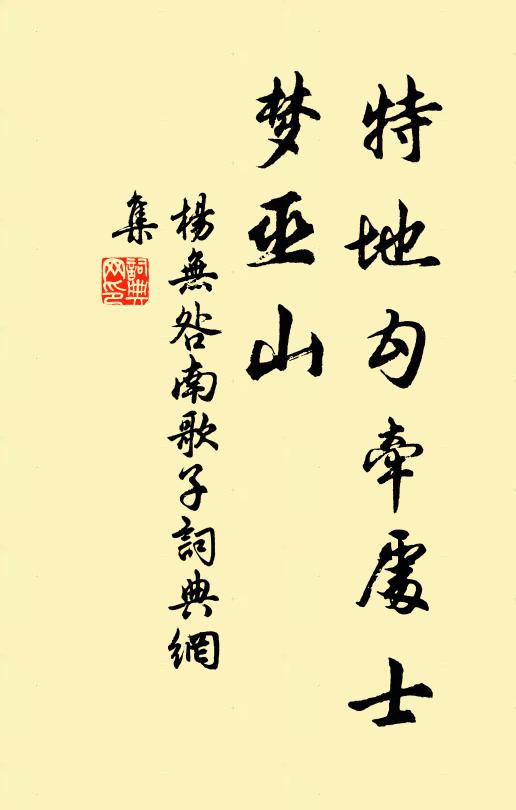 特地勾牵處士
梦巫山
楊無咎南歌子詞典網
集
詞典
网印